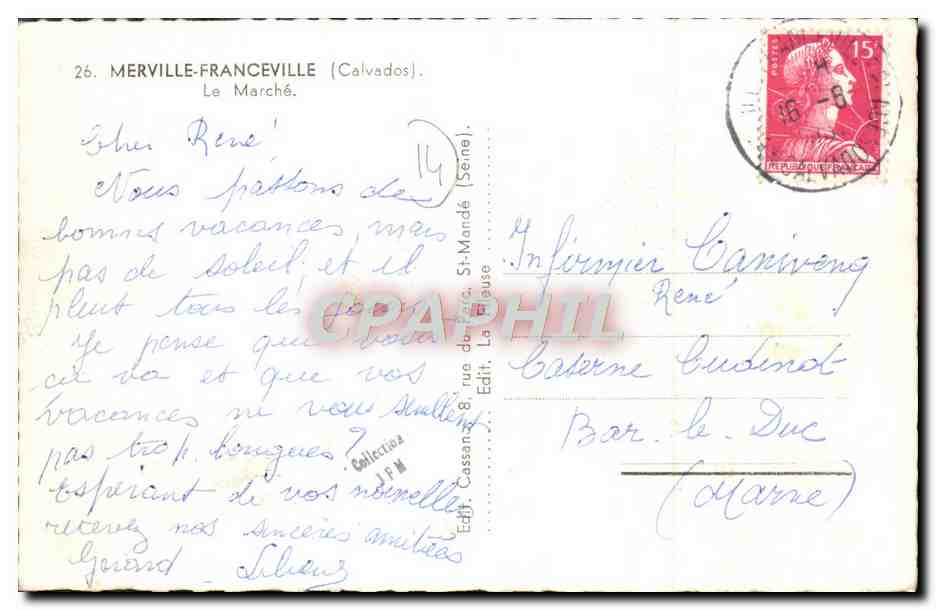 26. MERVILLE-FRANCEVILLE (Calvados).
Le Marché.
Cher René
14
Nous passons de
bonnes vacances, mais
pas de soleil, et il
pleut tous les jours
Je pense que vous
ça va et que vos
vacances ne vous semblent
pas trop longues?
Espérant de vos nouvelles
recevez nos sincères amitiés
Gérard
Collection
J F M
Edit. Cassan, 8, rue du Parc, St-Mandé (Seine).
Edit. La Fileuse
POSTES
15F
16 -8
CALVADOS
REPUBLIQUE FRANÇAISE
Infirmier
René
Caserne Oudinot
Bar-le-Duc
(Marne)
CPAPHIL